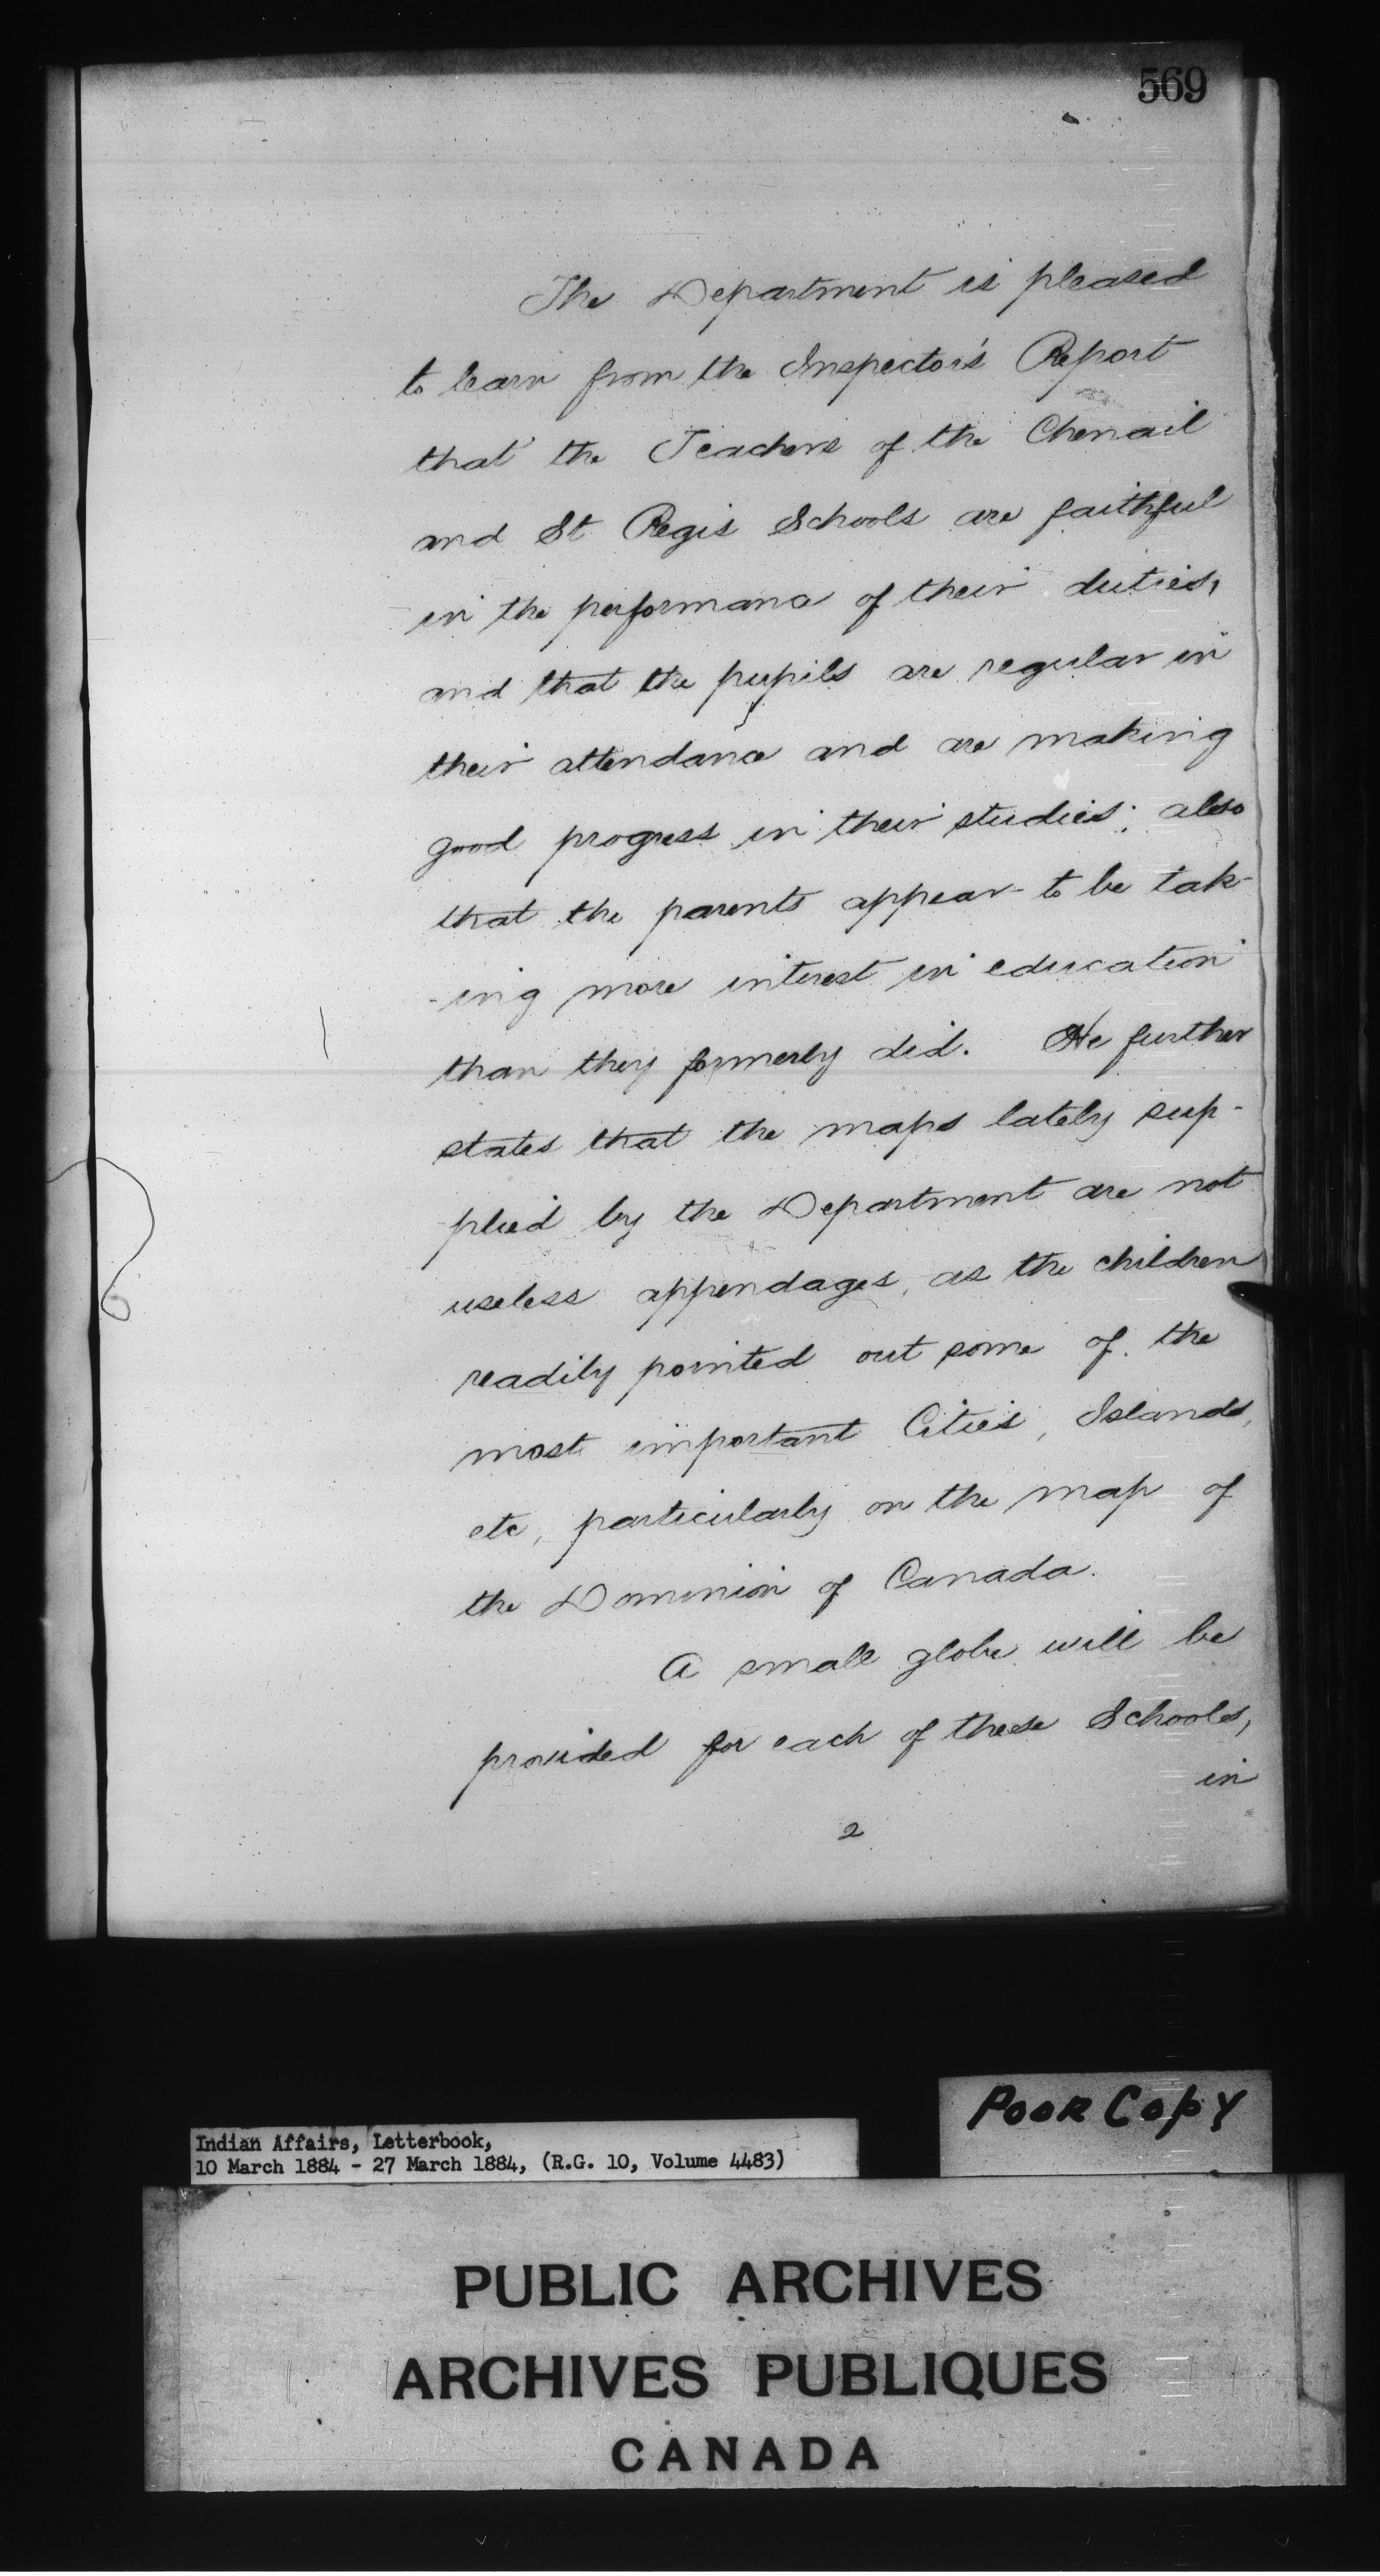 569
The Department is pleased
to learn from the Inspector's Report
that the Teachers of the Chenail
and St Regis Schools are faithful
in the performance of their duties,
and that the pupils are regular in
their attendance and are making
good progress in their studies; also
that the parents appear to be tak-
-ing more interest in education
than they formerly did. He further
states that the maps lately sup-
plied by the Department are not
useless appendages, as the children
readily pointed out some of the
most important Cities, Islands,
etc, particularly on the map of
the Dominion of Canada.
A small globe will be
provided for each of these Schools,
in
2
Poor Copy
Indian Affairs, Letterbook,
10 March 1884 - 27 March 1884, (R.G. 10, Volume 4483)
PUBLIC ARCHIVES
ARCHIVES PUBLIQUES
CANADA